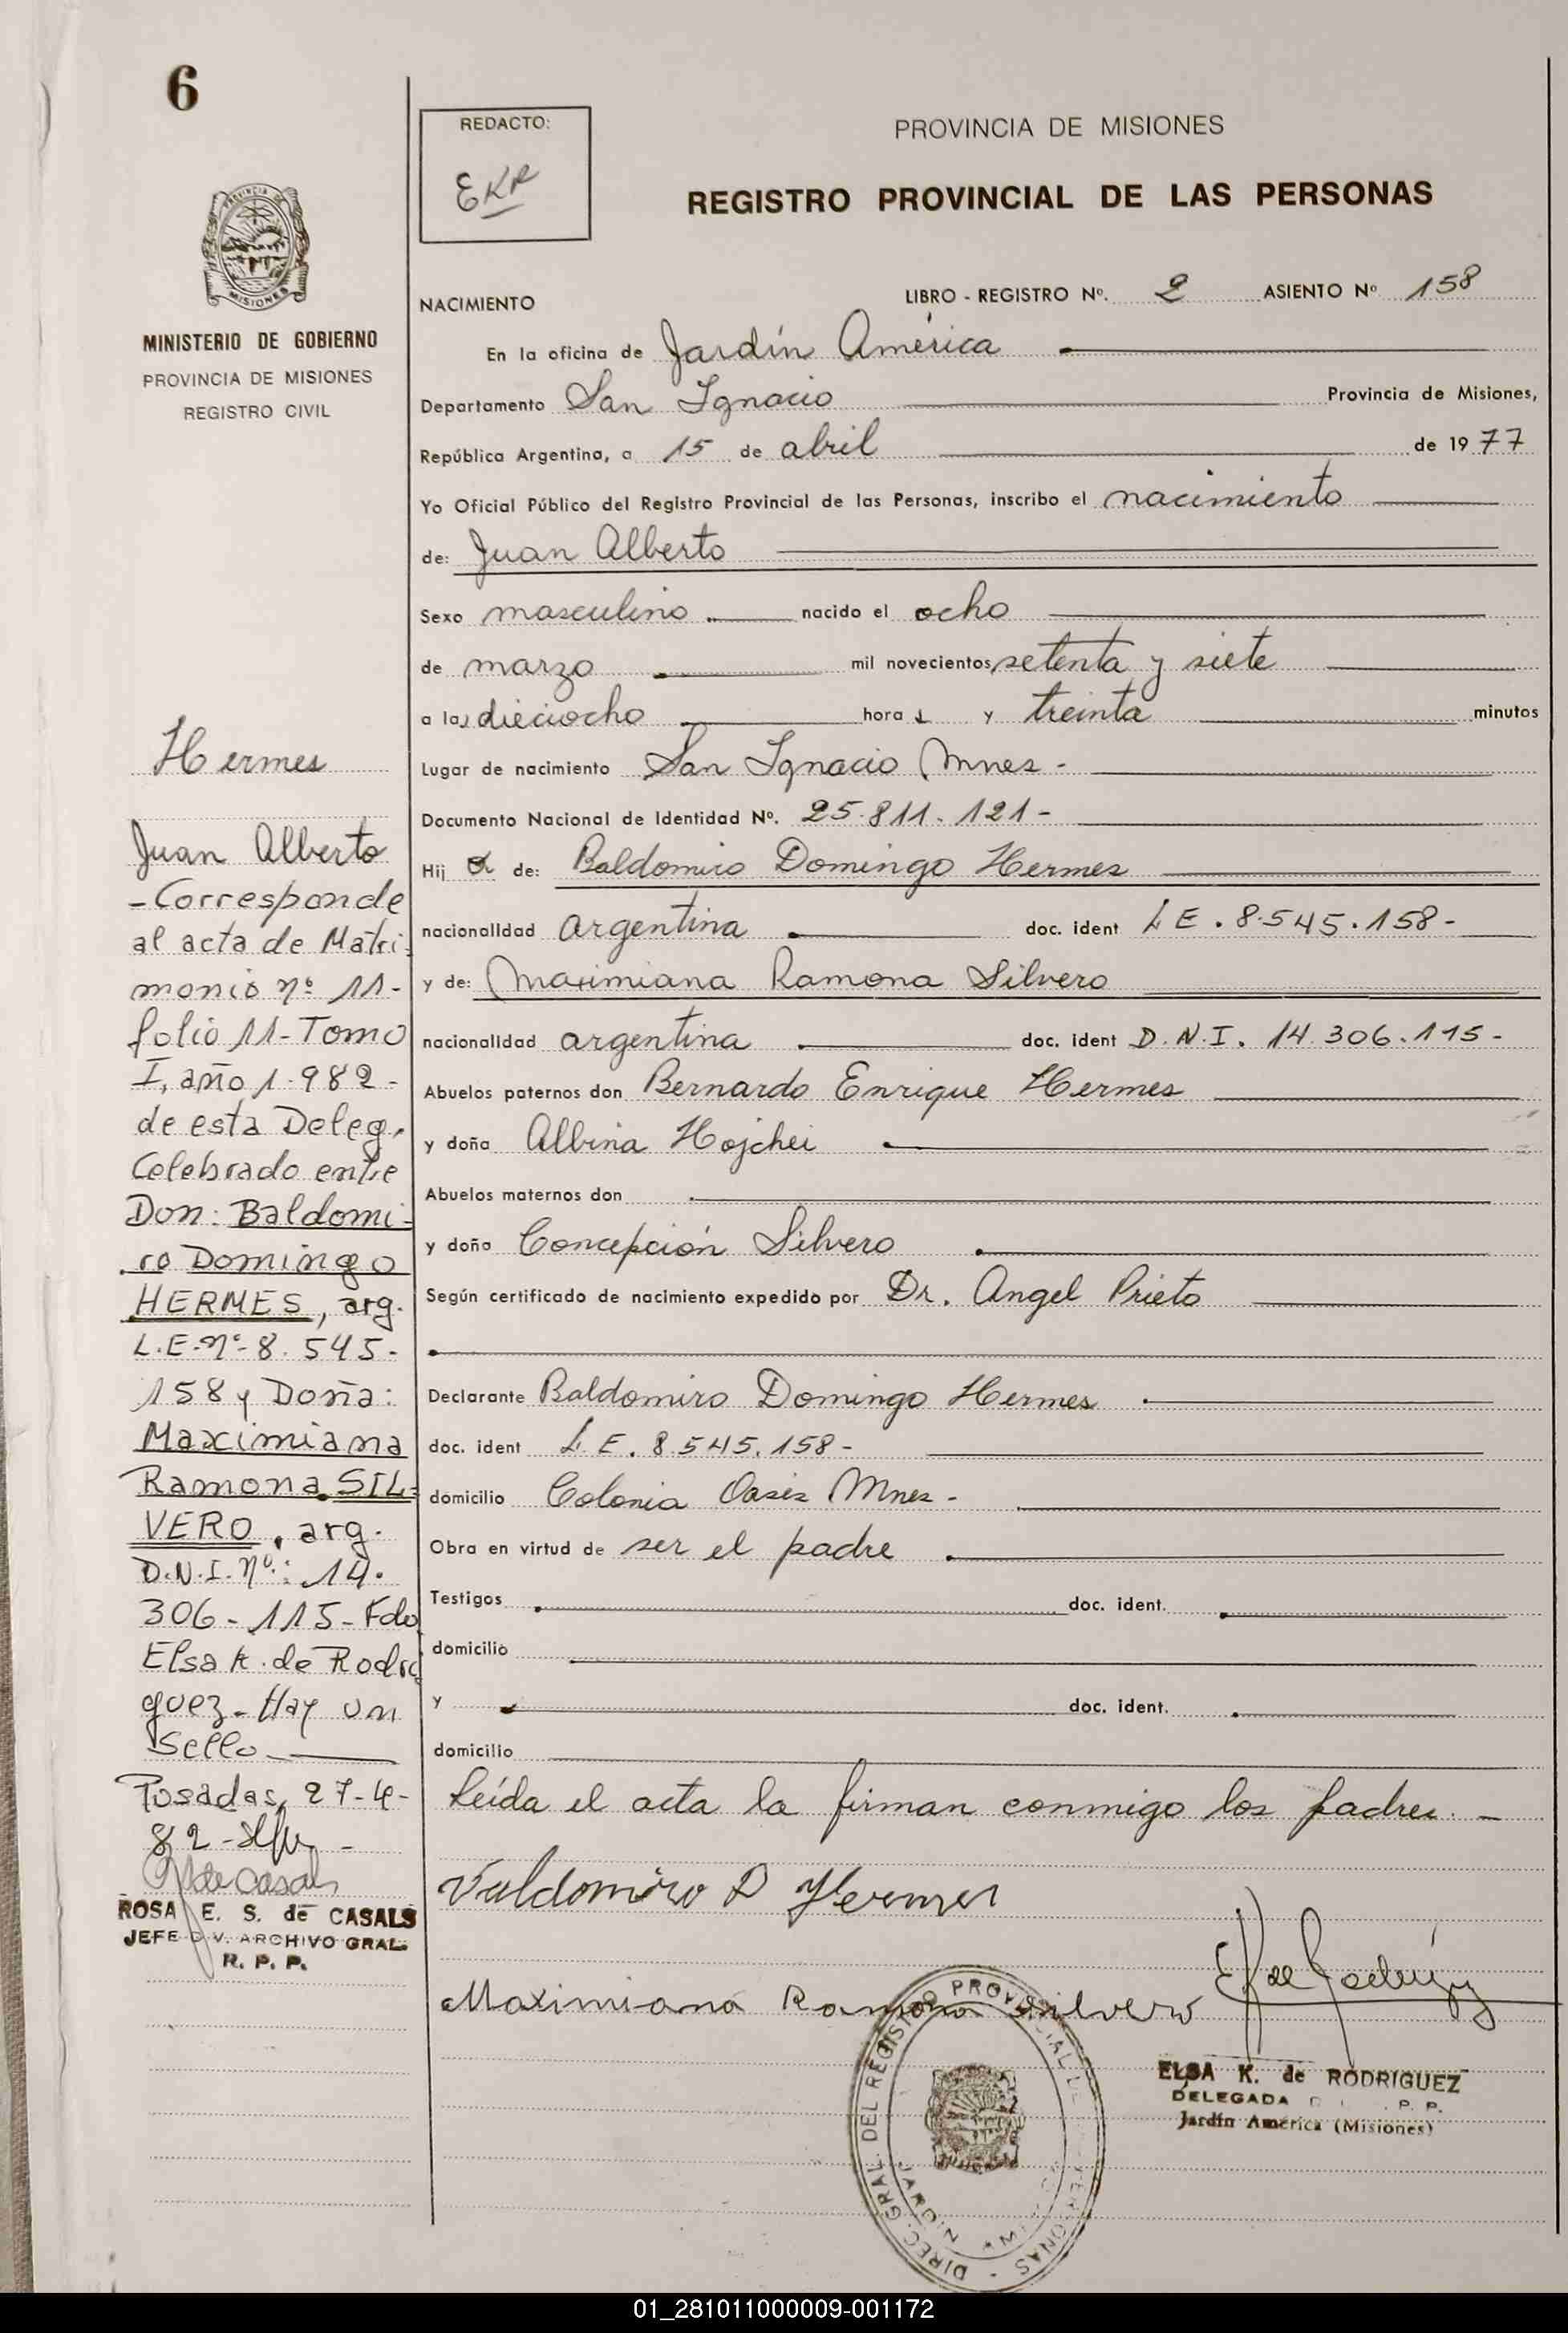 6
PROVINCIA DE
MISIONES
MINISTERIO DE GOBIERNO
PROVINCIA DE MISIONES
REGISTRO CIVIL
Hermes
Juan Alberto
- Corresponde
al acta de Matri-
monio nº 11-
folio 11-Tomo
I, año 1.982-
de esta Deleg.
Celebrado entre
Don: Baldomi-
ro Domingo
HERMES, arg.
L.E.nº-8.545-
158 y Doña:
Maximiana
Ramona SIL-
VERO, arg.
D.N.I. nº: 14.
306-115-Fdo
Elsa K. de Rodri
guez-Hay un
Sello
Posadas, 27-4-
82-
R de Casals
ROSA E. S. de CASALS
JEFE DIV. ARCHIVO GRAL.
R. P. P.
REDACTO:
EKR
PROVINCIA DE MISIONES
REGISTRO PROVINCIAL DE LAS PERSONAS
NACIMIENTO LIBRO - REGISTRO Nº. 2 ASIENTO Nº 158
En la oficina de Jardín América
Departamento San Ignacio Provincia de Misiones,
República Argentina, a 15 de abril de 1977
Yo Oficial Público del Registro Provincial de las Personas, inscribo el nacimiento
de: Juan Alberto
Sexo masculino nacido el ocho
de marzo mil novecientos setenta y siete
a las dieciocho hora s y treinta minutos
Lugar de nacimiento San Ignacio Mnes -
Documento Nacional de Identidad Nº. 25.811.121-
Hij o de: Baldomiro Domingo Hermes
nacionalidad argentina doc. ident L E . 8.545.158-
y de: Maximiana Ramona Silvero
nacionalidad argentina doc. ident D.N.I. 14.306.115-
Abuelos paternos don Bernardo Enrique Hermes
y doña Albina Hojchei
Abuelos maternos don
y doña Concepción Silvero
Según certificado de nacimiento expedido por Dr. Angel Prieto
Declarante Baldomiro Domingo Hermes
doc. ident L E. 8.545.158-
domicilio Colonia Oasis Mnes -
Obra en virtud de ser el padre
Testigos doc. ident.
domicilio
y doc. ident.
domicilio
Leída el acta la firman conmigo los padres. -
Valdomiro D Hermes
Maximiana Ramona Silvero
EK de Rodríguez
ELSA K. de RODRIGUEZ
DELEGADA P. P.
Jardín América (Misiones)
DIREC. GRAL. DEL REGISTRO PROVINCIAL DE LAS PERSONAS
01_281011000009-001172